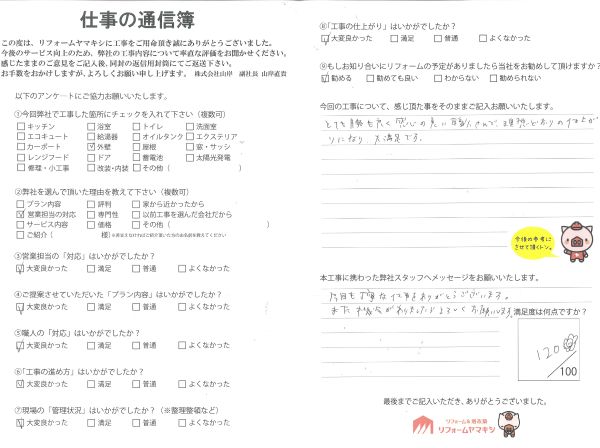 仕事の通信簿
この度は、リフォームヤマキシに工事をご用命頂き誠にありがとうございました。
今後のサービス向上のため、弊社の工事内容について率直な評価をお聞かせください。
感じたままのご意見をご記入後、同封の返信用封筒にてご返送下さい。
お手数をおかけしますが、よろしくお願い申し上げます。 株式会社山岸 副社長 山岸直貴
以下のアンケートにご協力お願いいたします。
①今回弊社で工事した箇所にチェックを入れて下さい（複数可）
□キッチン □浴室 □トイレ □洗面室
□エコキュート □給湯器 □オイルタンク □エクステリア
□カーポート ☑外壁 □屋根 □窓・サッシ
□レンジフード □ドア □蓄電池 □太陽光発電
□修理・小工事 □改装・内装 □その他（ ）
②弊社を選んで頂いた理由を教えて下さい（複数可）
□プラン内容 □評判 □家から近かったから
☑営業担当の対応 □専門性 □以前工事を頼んだ会社だから
□サービス内容 □価格 □その他（ ）
□ご紹介（ 様）※差支えなければご紹介頂いた方のお名前を教えてください
③営業担当の「対応」はいかがでしたか？
☑大変良かった □満足 □普通 □よくなかった
④ご提案させていただいた「プラン内容」はいかがでしたか？
☑大変良かった □満足 □普通 □よくなかった
⑤職人の「対応」はいかがでしたか？
☑大変良かった □満足 □普通 □よくなかった
⑥「工事の進め方」はいかがでしたか？
☑大変良かった □満足 □普通 □よくなかった
⑦現場の「管理状況」はいかがでしたか？（※整理整頓など）
☑大変良かった □満足 □普通 □よくなかった
⑧「工事の仕上がり」はいかがでしたか？
☑大変良かった □満足 □普通 □よくなかった
⑨もしお知り合いにリフォームの予定がありましたら当社をお勧めして頂けますか？
☑勧める □勧めても良い □わからない □勧められない
今回の工事について、感じ頂た事をそのままご記入お願いいたします。
とても 良く 感じの良い 職人さんで、理想どおりの仕上が
りになり 大満足です。
今後の参考に
させて頂くトン。
本工事に携わった弊社スタッフへメッセージをお願いいたします。
今回も丁寧な仕事をありがとうございます。
また 機会がありましたらよろしくお願いします。
満足度は何点ですか？
120
/100
最後までご記入いただき、ありがとうございました。
リフォーム&増改築
リフォームヤマキシ